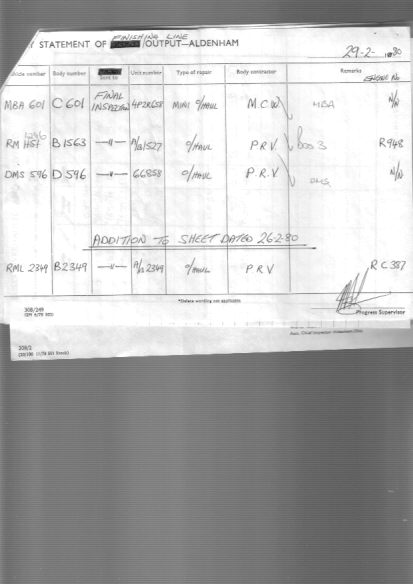 FINISHING LINE
Y STATEMENT OF /OUTPUT—ALDENHAM
29-2- 1980
hicle number Body number Sent to Unit number Type of repair Body contractor Remarks
ENGINE No
MBA 601 C 601 FINAL INSPECTION 4P2R658 MINI O/HAUL M.C.W. MBA N/N
1246
RM B1563 —"— A/B1527 O/HAUL P.R.V. Box 3 R948
DMS 596 D 596 —"— 66858 O/HAUL P.R.V DMS N/N
ADDITION TO SHEET DATED 26-2-80
RML 2349 B2349 —"— A/B 2349 O/HAUL P R V R C 387
*Delete wording not applicable
308/249
Progress Supervisor
308/2